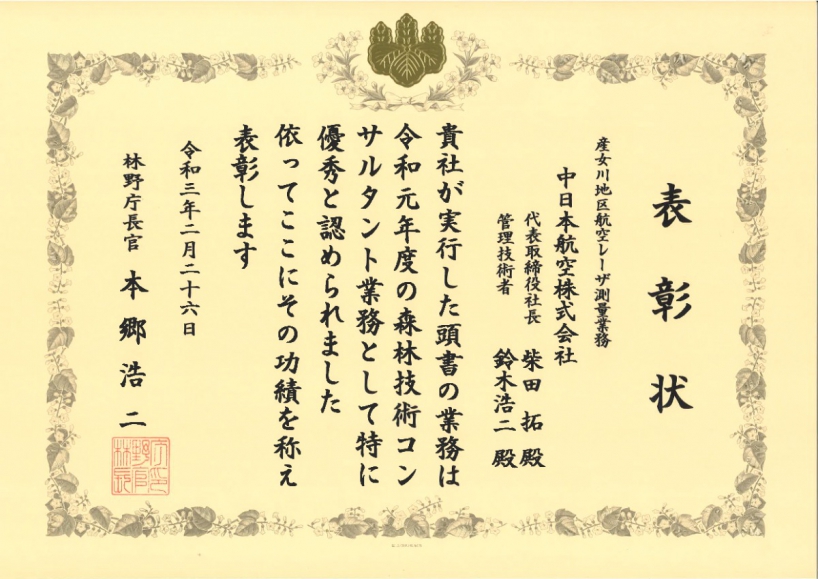 表彰状
産女川地区航空レーザ測量業務
中日本航空株式会社
代表取締役社長 柴田拓殿
管理技術者 鈴木浩二殿
貴社が実行した頭書の業務は
令和元年度の森林技術コン
サルタント業務として特に
優秀と認められました
依ってここにその功績を称え
表彰します
令和三年二月二十六日
林野庁長官 本郷浩二